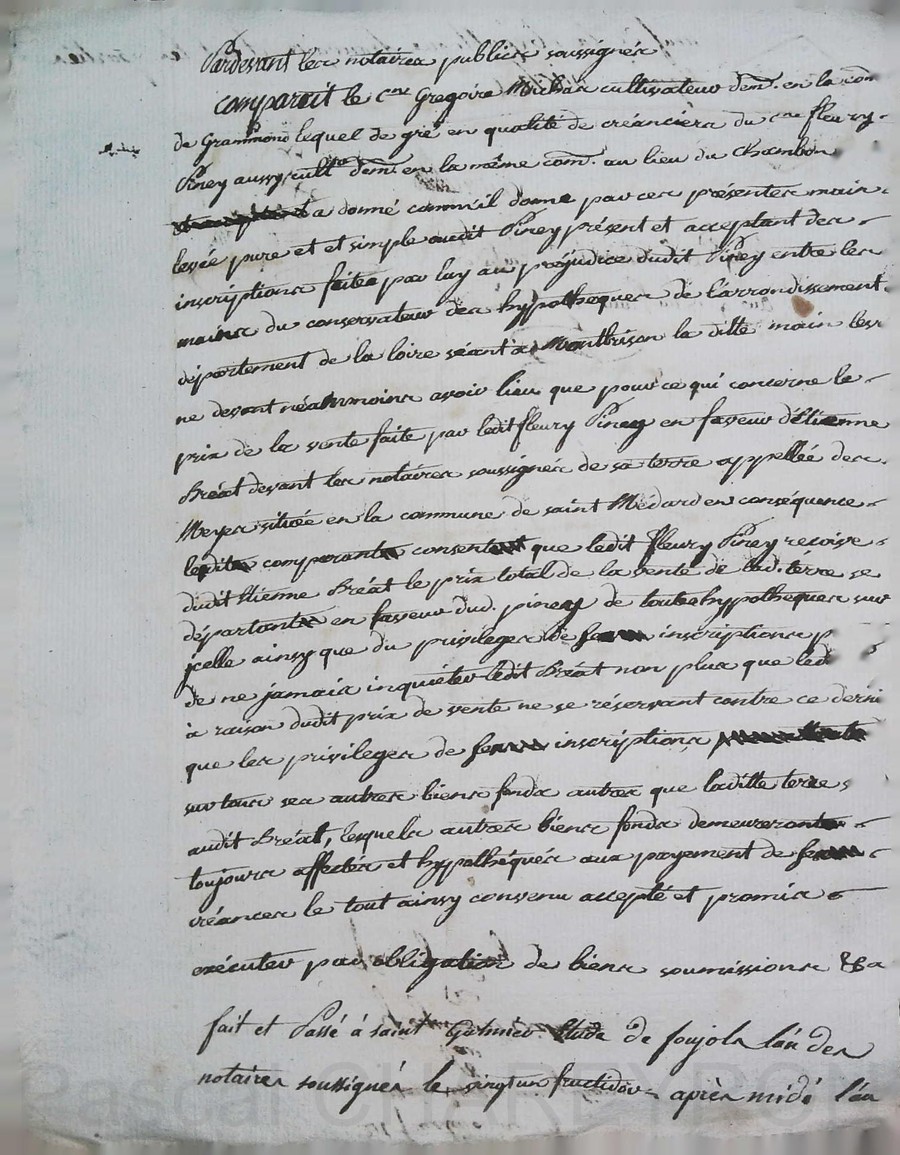 Pardevant les notaires publics soussignés
comparait le c.en Gregoire cultivateur dem.t en la com
de Grammond lequel de gré en qualité de créanciers du c.en fleury
Piney aussy cult.r dem.t en la même com. au lieu du Chambon
a donné comm'il donne par ces présentes main
levée pure et et simple audit Piney présent et acceptant des
inscriptions faites par luy au préjudice dudit Piney entre les
mains du conservateur des hypotheques de l'arrondissement
département de la loire séant à Montbrison la ditte main levé
ne devant néahmoins avoir lieu que pour ce qui concerne le
prix de la vente faite par ledit fleury Piney en faveur d'étienne
Bréat devant les notaires soussignés de sa terre appellée des
Meyes située en la commune de saint Médard en conséquence
ledit comparant consent que ledit fleury Piney recoive
dudit étienne Bréat le prix total de la vente de lad. terre se
départant en faveur dud. piney de toutes hypotheques sur
jcelle ainsy que du privileges de inscriptions
de ne jamais inquiéter ledit Bréat non plus que led
à raison dudit prix de vente ne se réservant contre ce derni
que les privileges de inscriptions
sur tous ses autres biens fonds autres que laditte terre
audit Bréat, lesquels autres biens fonds demeureront
toujours affectés et hypothéqués aux payement de
créances le tout ainsy convenu accepté et promis
exécuter par obligation de biens soumissions &a
fait et Passé à saint Galmier étude de foujols l'un des
notaires soussignés le vingt un fructidor après midi l'an
Pascal CHAREYRON